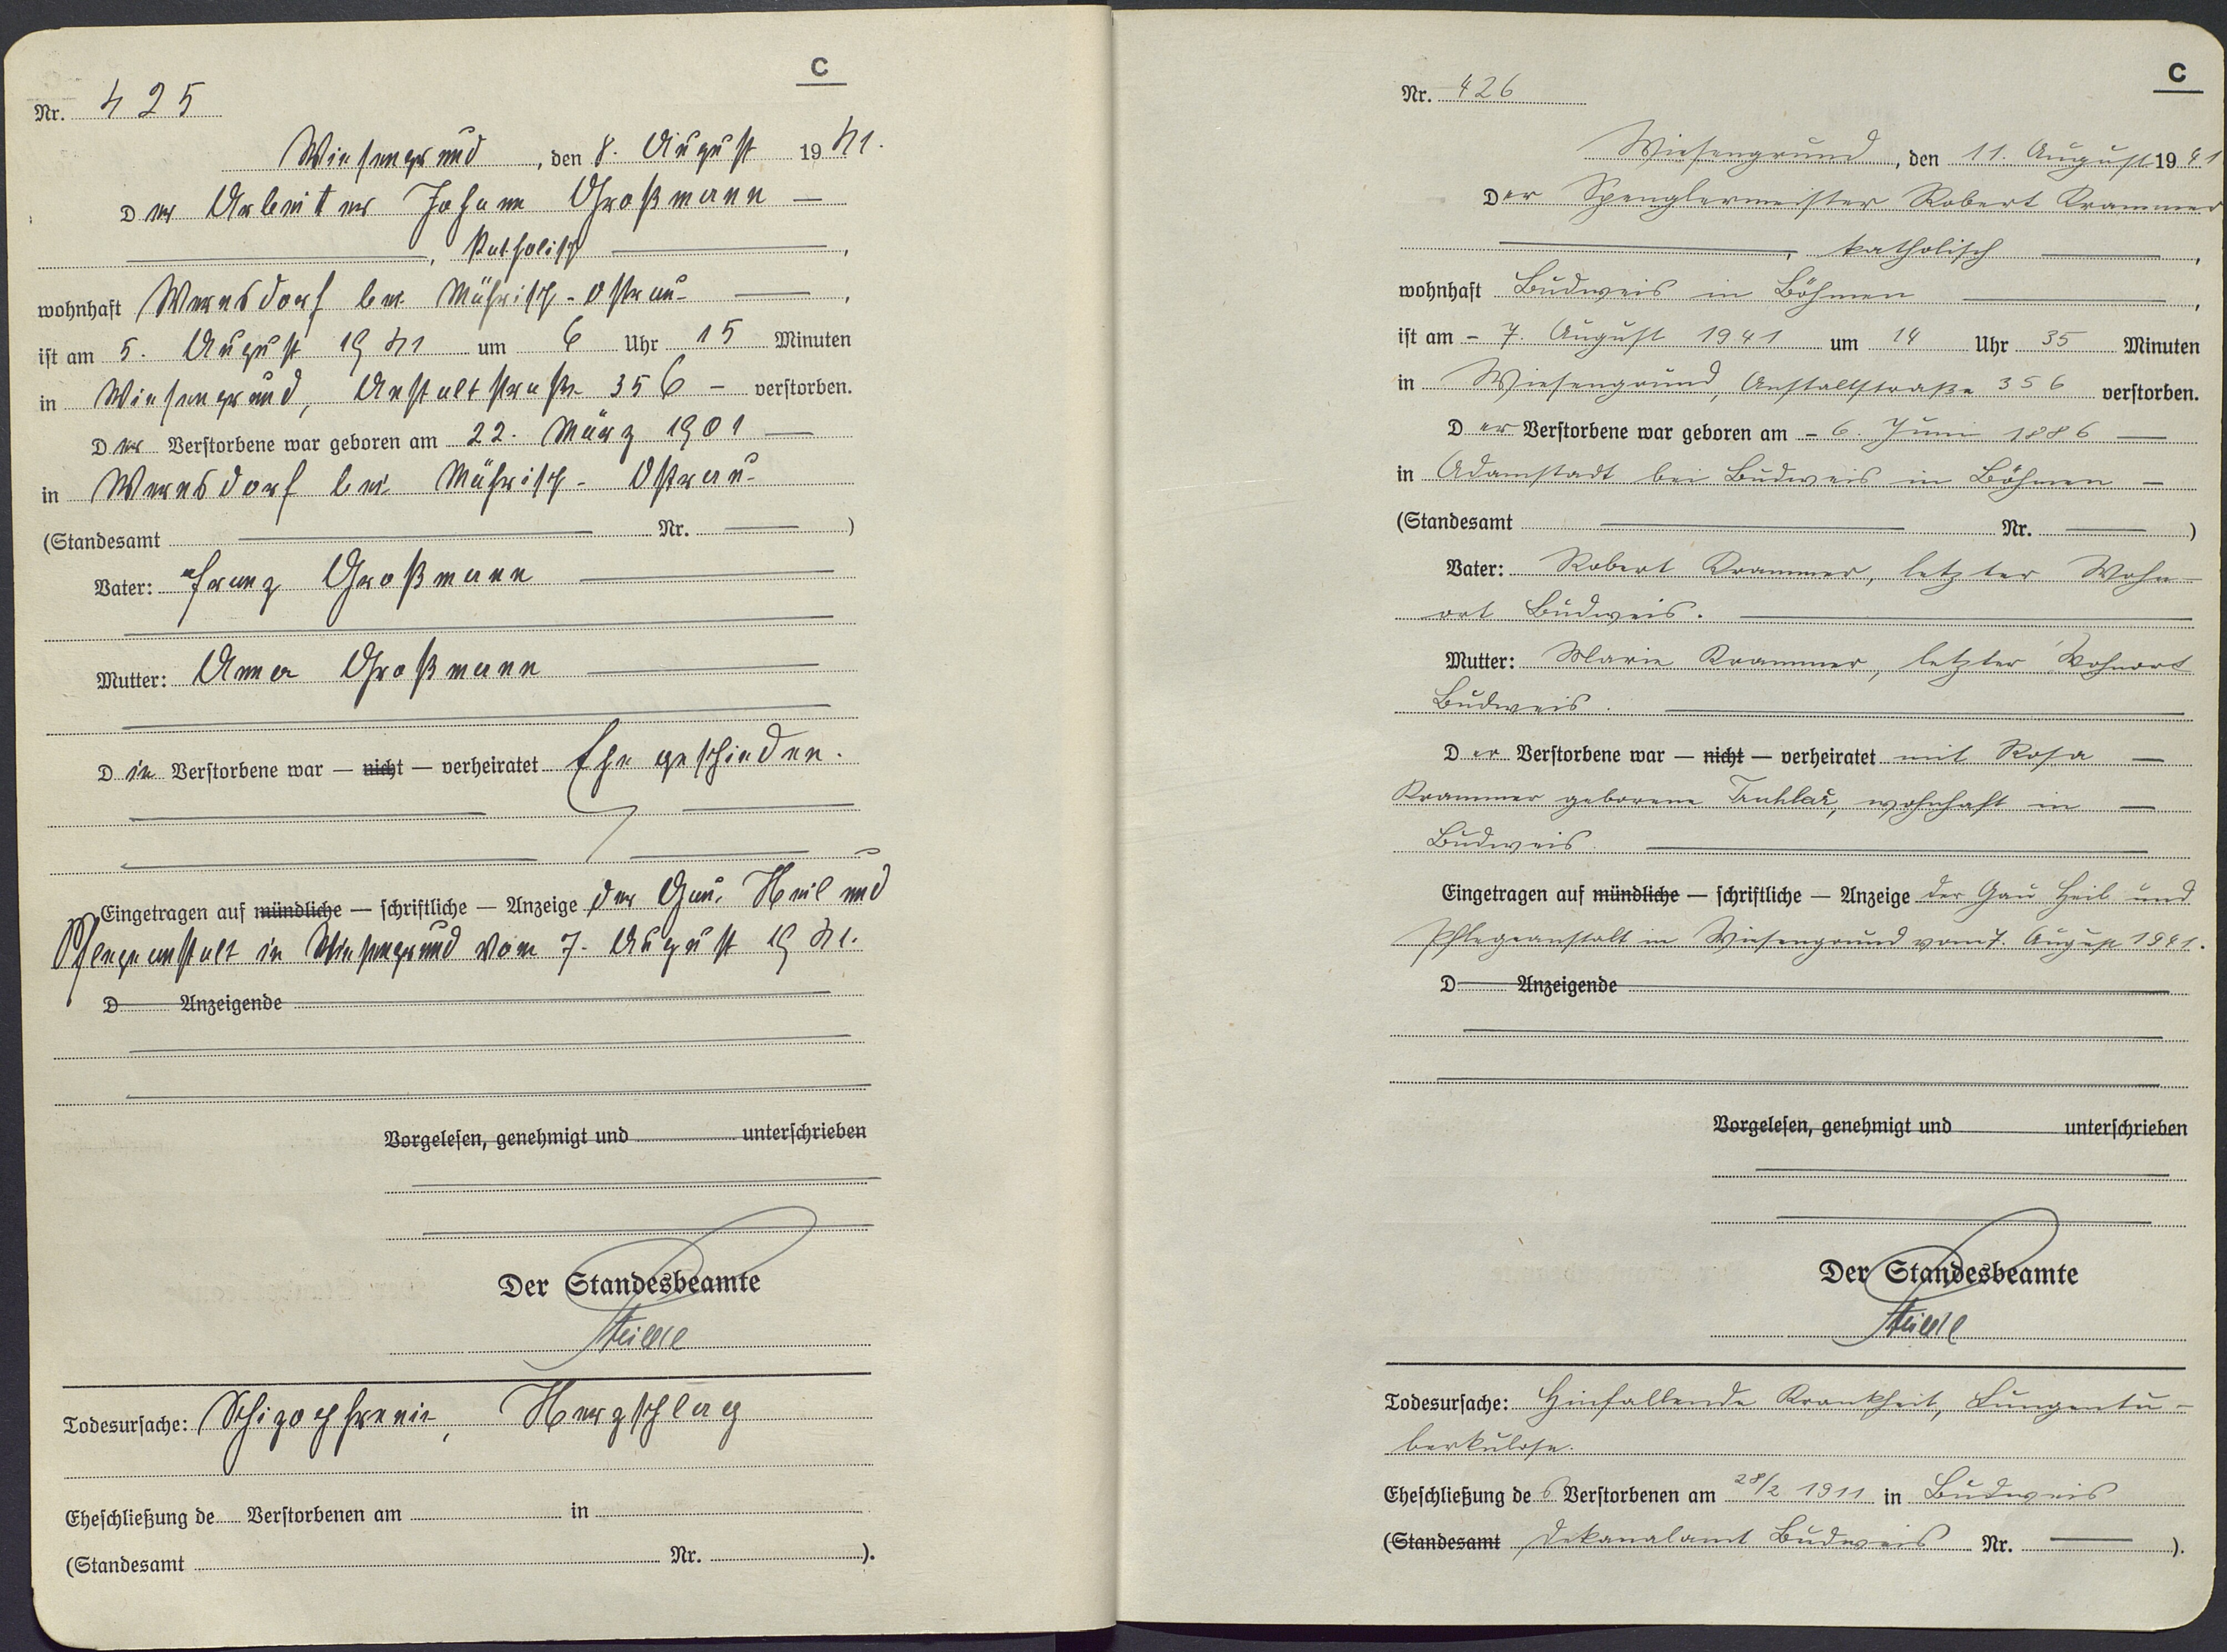 C
Nr. 425
Wiesengrund, den 8. August 1941.
Der Arbeiter Johann Großmann —
—, katholisch —,
wohnhaft Wernsdorf bei Mährisch-Ostrau- —,
ist am 5. August 1941 um 6 Uhr 15 Minuten
in Wiesengrund, Anstaltstraße 356 — verstorben.
Der Verstorbene war geboren am 22. März 1901 —
in Wernsdorf bei Mährisch-Ostrau-
(Standesamt — Nr. —)
Vater: Franz Großmann —
Mutter: Anna Großmann —
Die Verstorbene war — nicht — verheiratet Ehe geschieden.
Eingetragen auf mündliche — schriftliche — Anzeige der Gau, Heil und
Pflegeanstalt in Wiesengrund vom 7. August 1941.
D Anzeigende
Vorgelesen, genehmigt und unterschrieben
Der Standesbeamte
Todesursache: Schizophrenie, Herzschlag
Eheschließung de Verstorbenen am in
(Standesamt Nr. ).
C
Nr. 426
Wiesengrund, den 11. August 1941
Der Spenglermeister Robert Krammer
—, katholisch —,
wohnhaft Budweis in Böhmen —,
ist am - 7. August 1941 um 14 Uhr 35 Minuten
in Wiesengrund, Anstaltstraße 356 verstorben.
Der Verstorbene war geboren am - 6. Juni 1886 —
in Adamstadt bei Budweis in Böhmen —
(Standesamt — Nr. —)
Vater: Robert Krammer, letzter Wohn-
ort Budweis. —
Mutter: Marie Krammer, letzter Wohnort
Budweis. —
Der Verstorbene war — nicht — verheiratet mit Rosa —
Krammer geborene Truhlař, wohnhaft in —
Budweis. —
Eingetragen auf mündliche — schriftliche — Anzeige der Gau Heil und
Pflegeanstalt in Wiesengrund vom 7. August 1941.
D Anzeigende
Vorgelesen, genehmigt und unterschrieben
Der Standesbeamte
Todesursache: Hinfallende Krankheit, Lungentu-
berkulose.
Eheschließung des Verstorbenen am 28/2 1911 in Budweis
(Standesamt Dekanalamt Budweis Nr. —).